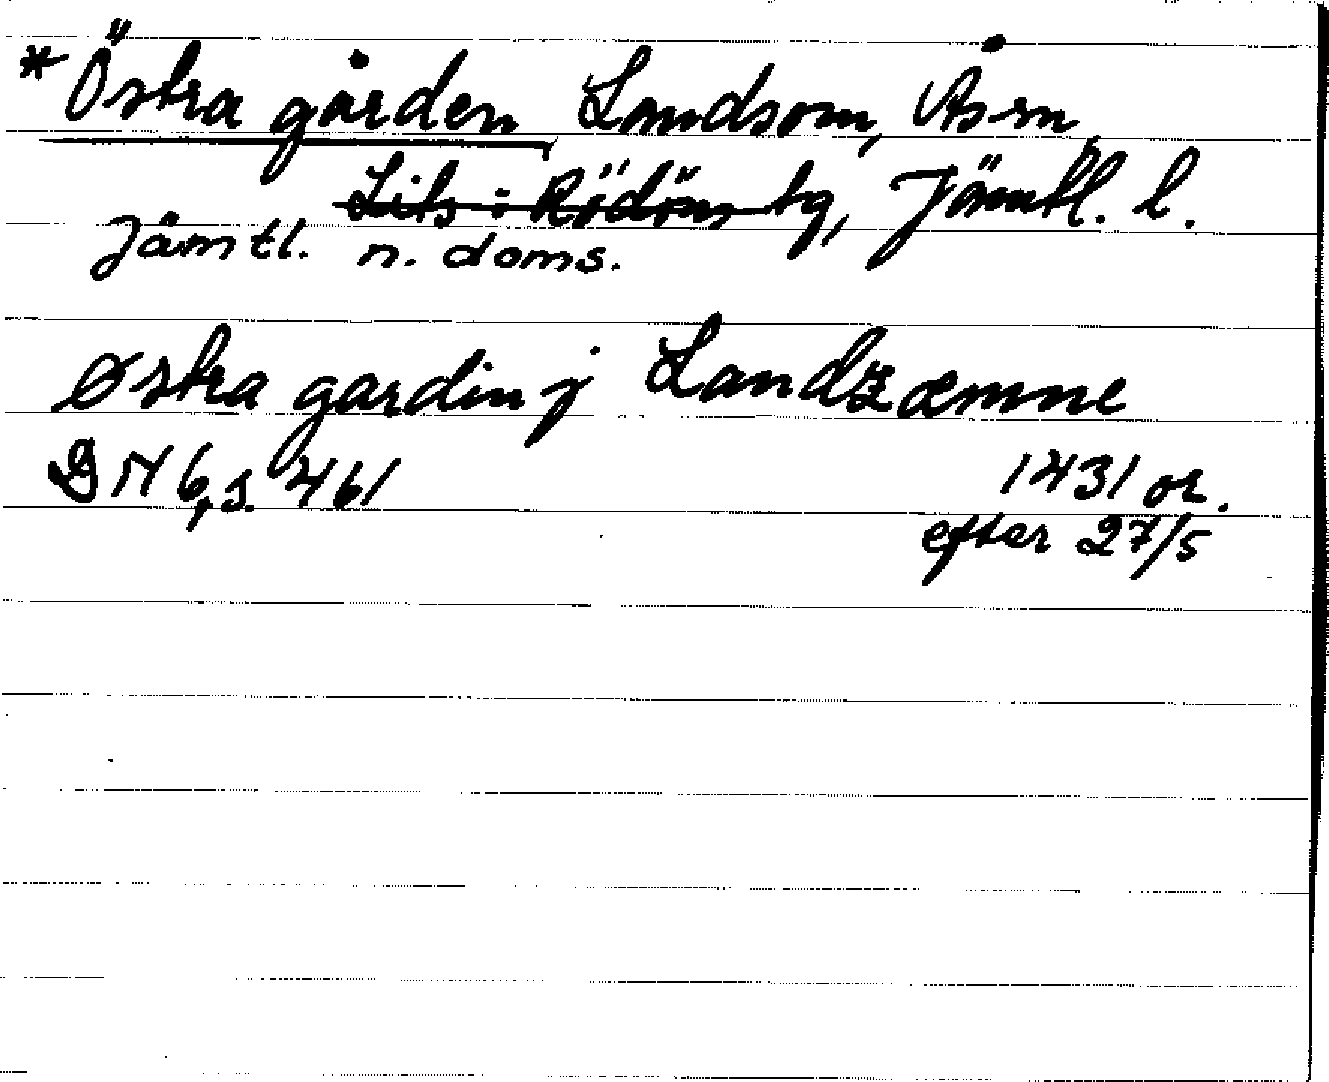 *Östra gården, Landsom, Ås sn,
Lits o Rödöns tg, Jämtl. l.
Jämtl. n. doms.
Østra gardin j Landzæmne
DN 6, s. 461 1431 or.
efter 27/5